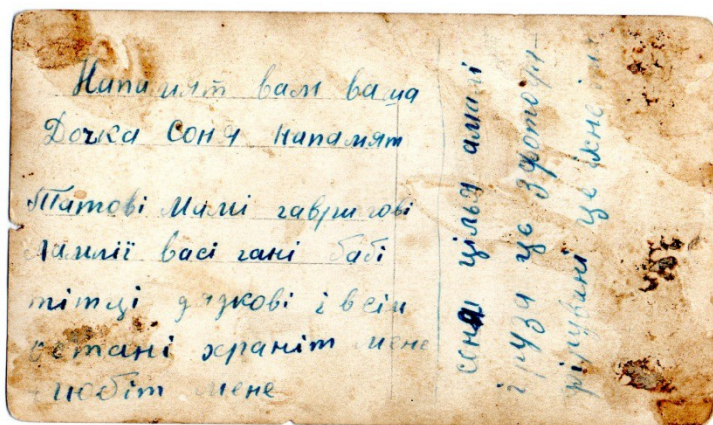 Напамят вам ваша
Дочка Соня Напамят
Татові Мамі гаврилові
васі гані бабі
тітці дядкові і всім
остані храніт мене
любіт мене
соня цілью
і рузя це зфотогра-
фірувані ще